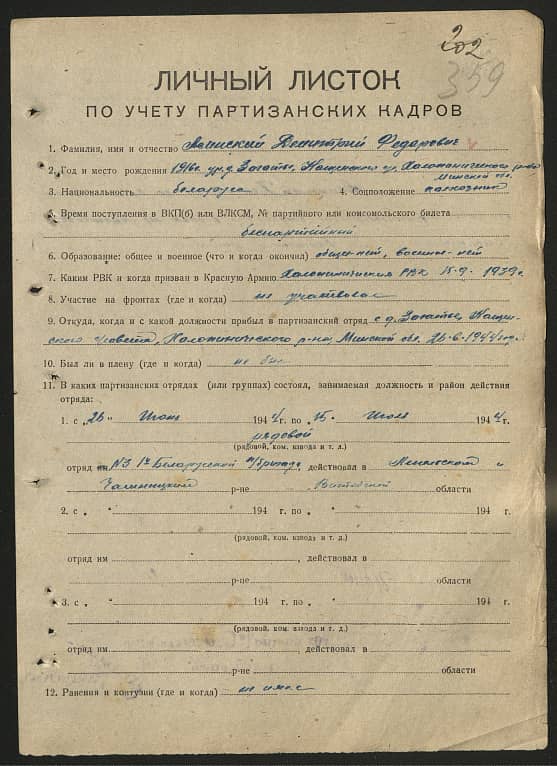 202
359
ЛИЧНЫЙ ЛИСТОК
ПО УЧЕТУ ПАРТИЗАНСКИХ КАДРОВ
1. Фамилия, имя и отчество Дмитрий Федарович
2. Год и место рождения 1916г. ур. д. Загатье, Холопеничского р-на
Минской обл.
3. Национальность беларус 4. Соцположение колхозник
5. Время поступления в ВКП(б) или ВЛКСМ, № партийного или комсомольского билета
беспартийный
6. Образование: общее и военное (что и когда окончил) общее-нет, военное-нет
7. Каким РВК и когда призван в Красную Армию Холопеничским РВК 15-9-1939г.
8. Участие на фронтах (где и когда) не участвовал
9. Откуда, когда и с какой должности прибыл в партизанский отряд с д. Загатье,
Холопеничского р-на, Минской обл. 26-6-1944 года
10. Был ли в плену (где и когда) не был
11. В каких партизанских отрядах (или группах) состоял, занимаемая должность и район действия
отряда:
1. с „26" Июня 1944 г. по „15" Июля 1944 г.
рядовой
(рядовой, ком. взвода и т. д.)
отряд им. №3 1й Белорусской п/бригады, действовал в Лепельском и
Чашницком р-не Витебской области
2. с „ " 194 г. по „ " 194 г.
(рядовой, ком. взвода и т. д.)
отряд им , действовал в
р-не области
3. с „ " 194 г. по „ " 194 г.
(рядовой, ком. взвода и т. д.)
отряд им. , действовал в
р-не области
12. Ранения и контузии (где и когда) не имел